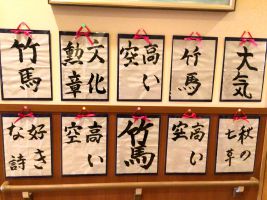 竹馬
文化
勲章
高い
空
竹馬
大気
好き
な詩
高い
空
竹馬
高い
空
秋の
七草